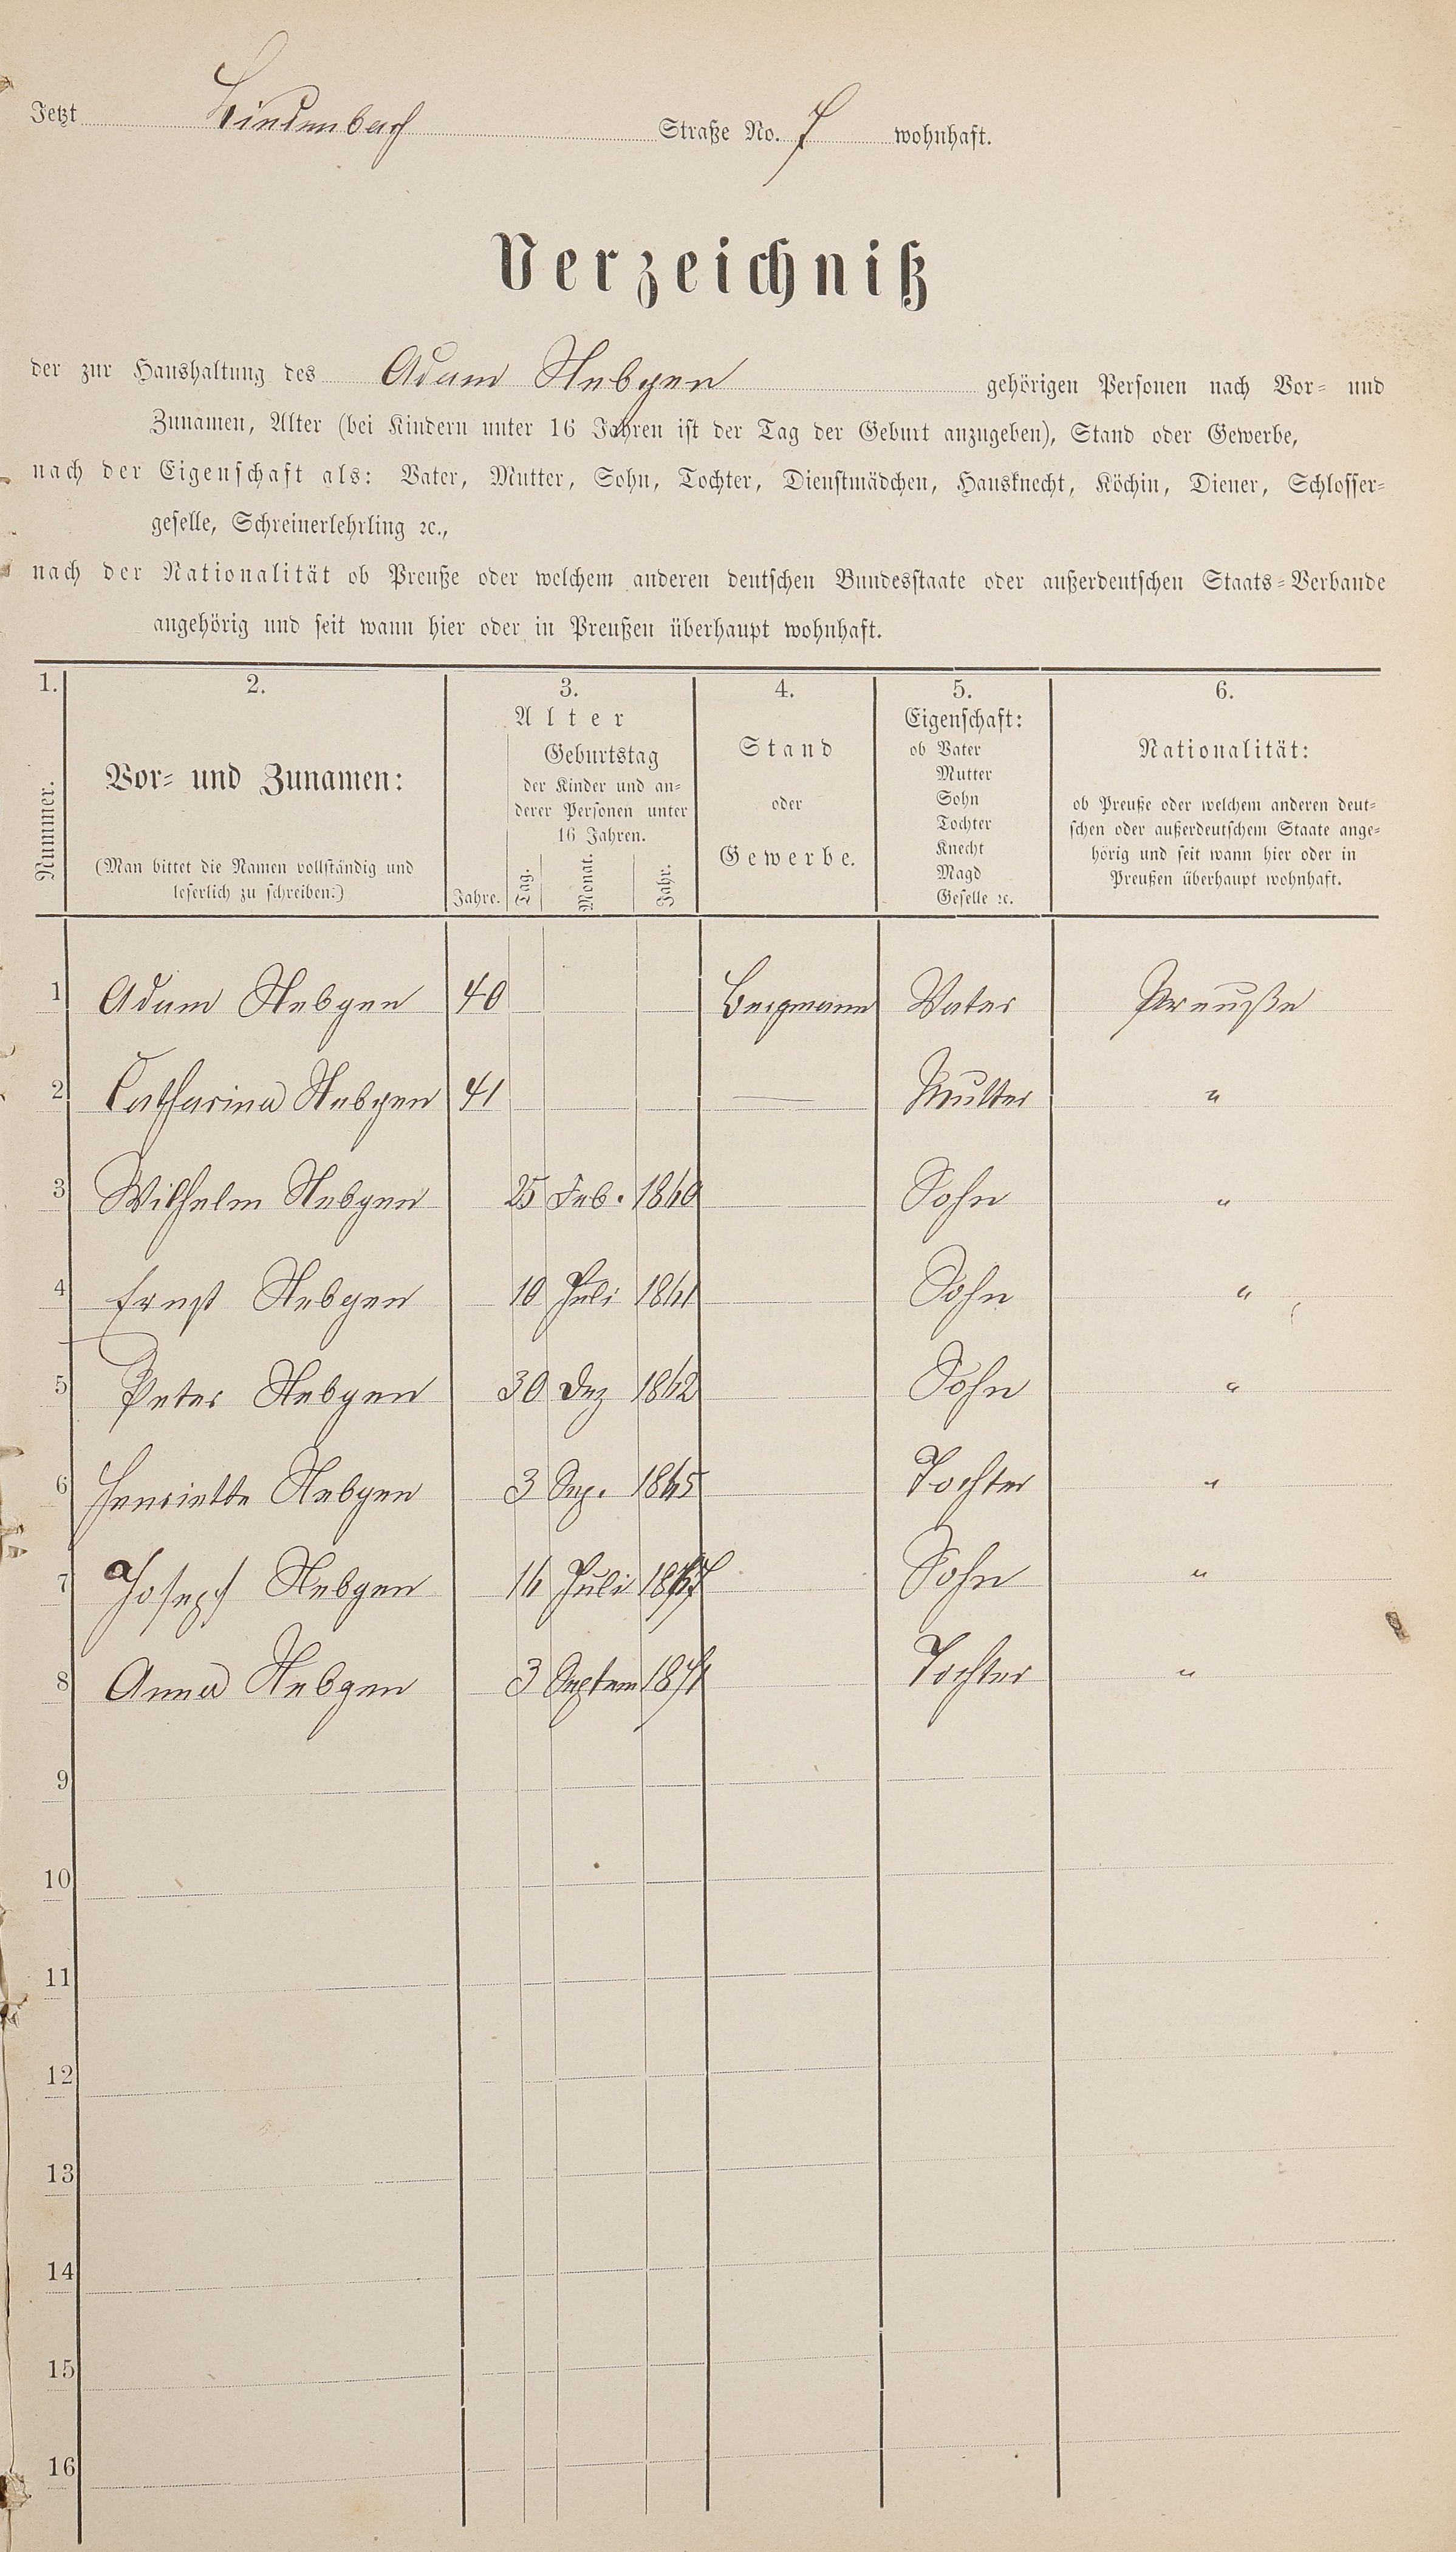 Jetzt Lindenbach Straße No. 7 wohnhaft.
Verzeichniß
der zur Haushaltung des Adam Nebgen gehörigen Personen nach Vor- und
Zunamen, Alter (bei Kindern unter 16 Jahren ist der Tag der Geburt anzugeben), Stand oder Gewerbe,
nach der Eigenschaft als: Vater, Mutter, Sohn, Tochter, Dienstmädchen, Hausknecht, Köchin, Diener, Schlosser-
geselle, Schreinerlehrling ꝛc.,
nach der Nationalität ob Preuße oder welchem anderen deutschen Bundesstaate oder außerdeutschen Staats-Verbande
angehörig und seit wann hier oder in Preußen überhaupt wohnhaft.
1.
Nummer.
2.
Vor- und Zunamen:
(Man bittet die Namen vollständig und
leserlich zu schreiben.)
3.
Alter
Jahre.
Geburtstag
der Kinder und an-
derer Personen unter
16 Jahren.
Tag. Monat. Jahr.
4.
Stand
oder
Gewerbe.
5.
Eigenschaft:
ob Vater
Mutter
Sohn
Tochter
Knecht
Magd
Geselle ꝛc.
6.
Nationalität:
ob Preuße oder welchem anderen deut-
schen oder außerdeutschem Staate ange-
hörig und seit wann hier oder in
Preußen überhaupt wohnhaft.
1 Adam Nebgen 40 Bergmann Vater Preuße
2 Catharina Nebgen 41 — Mutter "
3 Wilhelm Nebgen 25 Feb. 1860 Sohn "
4 Ernst Nebgen 10 Juli 1861 Sohn "
5 Peter Nebgen 30 Dez 1862 Sohn "
6 Henriette Nebgen 3 Sep. 1865 Tochter "
7 Joseph Nebgen 16 Juli 1867 Sohn "
8 Anna Nebgen 3 Septem 1871 Tochter "
9
10
11
12
13
14
15
16